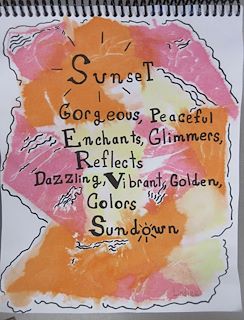 Sunset
Gorgeous, Peaceful
Enchants, Glimmers,
Reflects
Dazzling, Vibrant, Golden,
Colors
Sundown